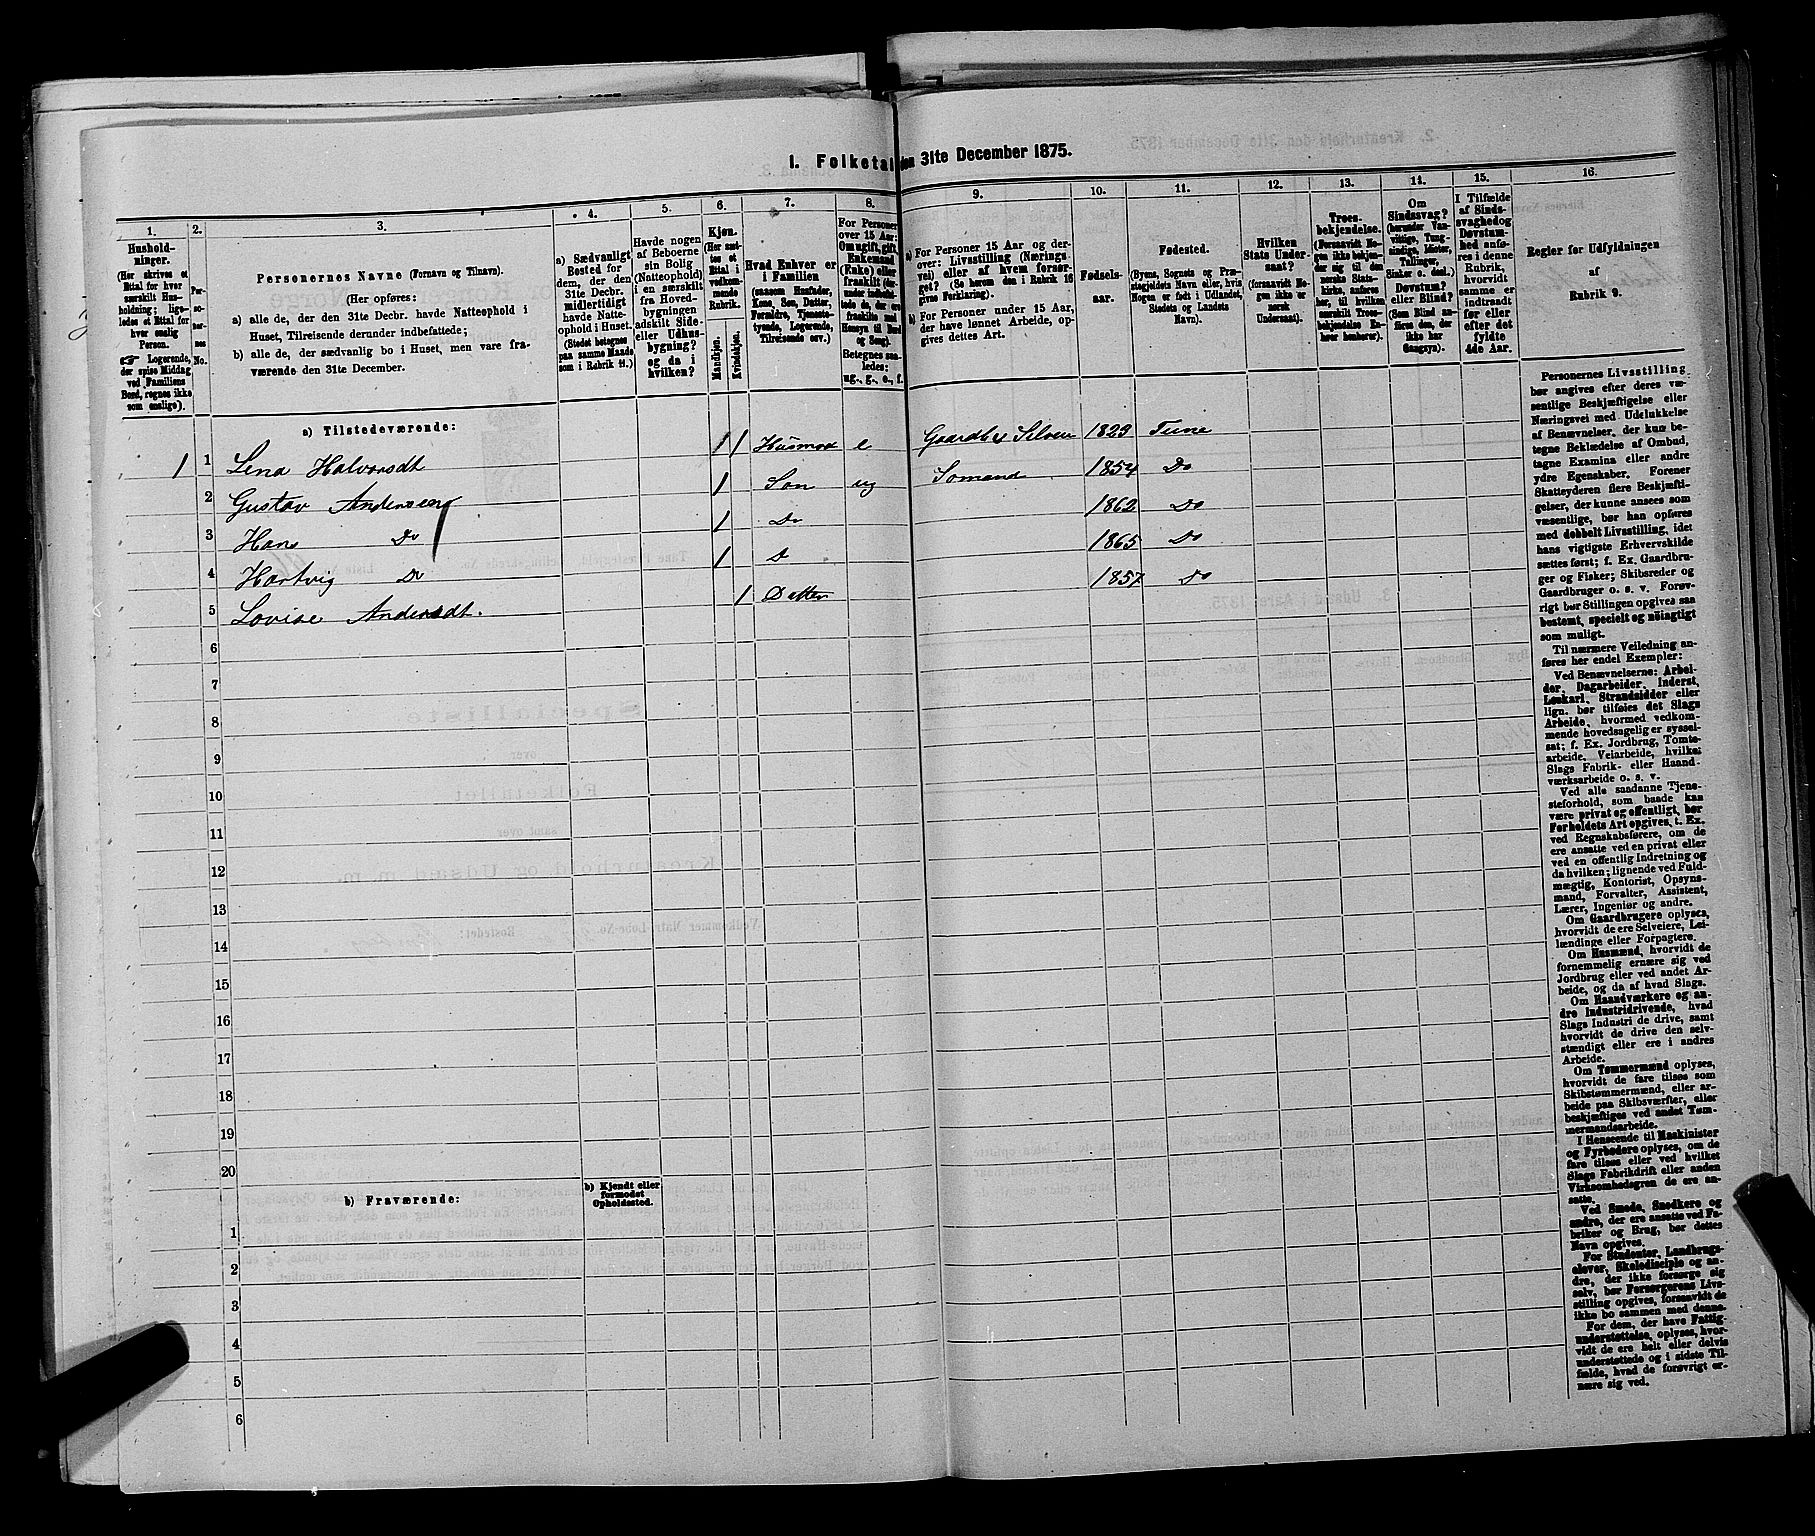 1. Folketal den 31te December 1875.
1.
Hushold-
ninger.
(Her skrives et
Ettal for hver
særskilt Hus-
holdning; lige-
ledes et Ettal for
hver enslig
Person.
☞ Logerende,
der spise Middag
ved Familiens
Bord, regnes ikke
som enslige).
2.
Per-
so-
ner-
nes
No.
3.
Personernes Navne (Fornavn og Tilnavn).
(Her opføres:
a) alle de, der den 31te Decbr. havde Natteophold i
Huset, Tilreisende derunder indbefattede;
b) alle de, der sædvanlig bo i Huset, men vare fra-
værende den 31te December.
4.
a) Sædvanligt
Bosted for
dem, der den
31te Decbr.
midlertidigt
havde Natte-
ophold i Huset.
(Stedet betegnes
paa samme Maade
som i Rubrik 11.)
5.
Havde nogen
af Beboerne
sin Bolig
(Natteophold)
i en særskilt
fra Hoved-
bygningen
adskilt Side-
eller Udhus-
bygning?
og da i
hvilken?
6.
Kjøn.
(Her sæt-
tes et
Ettal i
vedkom-
mende
Rubrik.
Mandkjøn.
Kvindekjøn.
7.
Hvad Enhver er
i Familien
(saasom Husfader,
Kone, Søn, Datter,
Forældre, Tjeneste-
tyende, Logerende,
Tilreisende osv.)
8.
For Personer
over 15 Aar:
Om ugift, gift,
Enkemand
(Enke) eller
fraskilt (der-
under indbefat-
tede de, der ere
fraskilte med
Hensyn til Bord
og Seng).
Betegnes saa-
ledes:
ug., g., e., f.
9.
a) For Personer 15 Aar og der-
over: Livsstilling (Nærings-
vei) eller af hvem forsør-
get? (Se herom den i Rubrik 16
givne Forklaring).
b) For Personer under 15 Aar,
der have lønnet Arbeide, op-
gives dettes Art.
10.
Fødsels-
aar.
11.
Fødested.
(Byens, Sognets og Præ-
stegjeldets Navn eller, hvis
Nogen er født i Udlandet,
Stedets og Landets
Navn).
12.
Hvilken
Stats Under-
saat?
(forsaavidt No-
gen ikke er
norsk
Undersaat).
13.
Troes-
bekjendelse.
(Forsaavidt No-
gen ikke bekjen-
der sig til den
norske Stats-
kirke, anføres
her, til hvilken
særskilt Troes-
bekjendelse En-
hver henhører).
14.
Om
Sindssvag?
(herunder Van-
vittige, Tung-
sindige, Idioter,
Tullinger,
Sinker o. desl.)
Døvstum?
eller Blind?
(Som Blind an-
føres den, der
ikke har
Gangsyn).
15.
I Tilfælde
af Sinds-
svaghed og
Døvstum-
hed anfø-
res i denne
Rubrik,
hvorvidt
samme er
indtraadt
før eller
efter det
fyldte
4de Aar.
16.
Regler for Udfyldningen
af
Rubrik 9.
a) Tilstedeværende:
1 1 Lena Halvorsdt 1 1 Husmod e Gaardbr Selvei 1829 Tune
2 Gustav Andersen 1 Søn ug Sømand 1854 Do
3 Hans Do 1 Do 1862 Do
4 Hartvig Do 1 D 1865 Do
5 Lovise Andersdt. 1 Datter 1857 Do
6
7
8
9
10
11
12
13
14
15
16
17
18
19
20
b) Fraværende:
b) Kjendt eller
formodet
Opholdssted.
1
2
3
4
5
6
Personernes Livsstilling
bør angives efter deres væ-
sentlige Beskjæftigelse eller
Næringsvei med Udelukkelse
af Benævnelser, der kun be-
tegne Beklædelse af Ombud,
tagne Examina eller andre
ydre Egenskaber. Forener
Skatteyderen flere Beskjæfti-
gelser, der kunne ansees som
væsentlige, bør han opføres
med dobbelt Livsstilling, idet
hans vigtigste Erhvervskilde
sættes først; f. Ex. Gaardbru-
ger og Fisker; Skibsreder og
Gaardbruger o. s. v. Forøv-
rigt bør Stillingen opgives saa
bestemt, specielt og nøiagtigt
som muligt.
Til nærmere Veiledning an-
føres her endel Exempler:
Ved Benævnelserne: Arbei-
der, Dagarbeider, Inderst,
Løskarl, Strandsidder eller
lign. bør tilføies det Slags
Arbeide, hvormed vedkom-
mende hovedsagelig er syssel-
sat; f. Ex. Jordbrug, Tomte-
arbeide, Veiarbeide, hvilket
Slags Fabrik- eller Haand-
værksarbeide o. s. v.
Ved alle saadanne Tjene-
steforhold, som baade kan
være privat og offentligt, bør
Forholdets Art opgives, t. Ex.
ved Regnskabsførere, om de
ere ansatte ved en privat eller
ved en offentlig Indretning og
da hvilken; lignende ved Fuld-
mægtig, Kontorist, Opsyns-
mand, Forvalter, Assistent,
Lærer, Ingeniør og andre.
Om Gaardbrugere oplyses,
hvorvidt de ere Selveiere, Lei-
lændinge eller Forpagtere.
Om Husmænd, hvorvidt de
fornemmelig ernære sig ved
Jordbrug eller ved andet Ar-
beide, og da af hvad Slags.
Om Haandværkere og an-
dre Industridrivende, hvad
Slags Industri de drive, samt
hvorvidt de drive den selv-
stændigt eller ere i andres
Arbeide.
Om Tømmermænd oplyses,
hvorvidt de fare tilsøs som
Skibstømmermænd, eller ar-
beide paa Skibsværfter, eller
beskjæftiges ved andet Tøm-
mermandsarbeide.
I Henseende til Maskinister
og Fyrbødere oplyses, om de
fare tilsøs eller ved hvilket
Slags Fabrikdrift eller anden
Virksomhedsgren de ere an-
satte.
Ved Smede, Snedkere og
andre, der ere ansatte ved Fa-
briker og Brug, bør dettes
Navn opgives.
For Studenter, Landbrugs-
elever, Skoledisciple og an-
dre, der ikke forsørge sig
selv, bør Forsørgerens Livs-
stilling opgives, forsaavidt de
ikke bo sammen med denne.
For dem, der have Fattig-
understøttelse, oplyses, hvor-
vidt de ere helt eller delvis
understøttede og i sidste Til-
fælde, hvad de forøvrigt er-
nære sig ved.